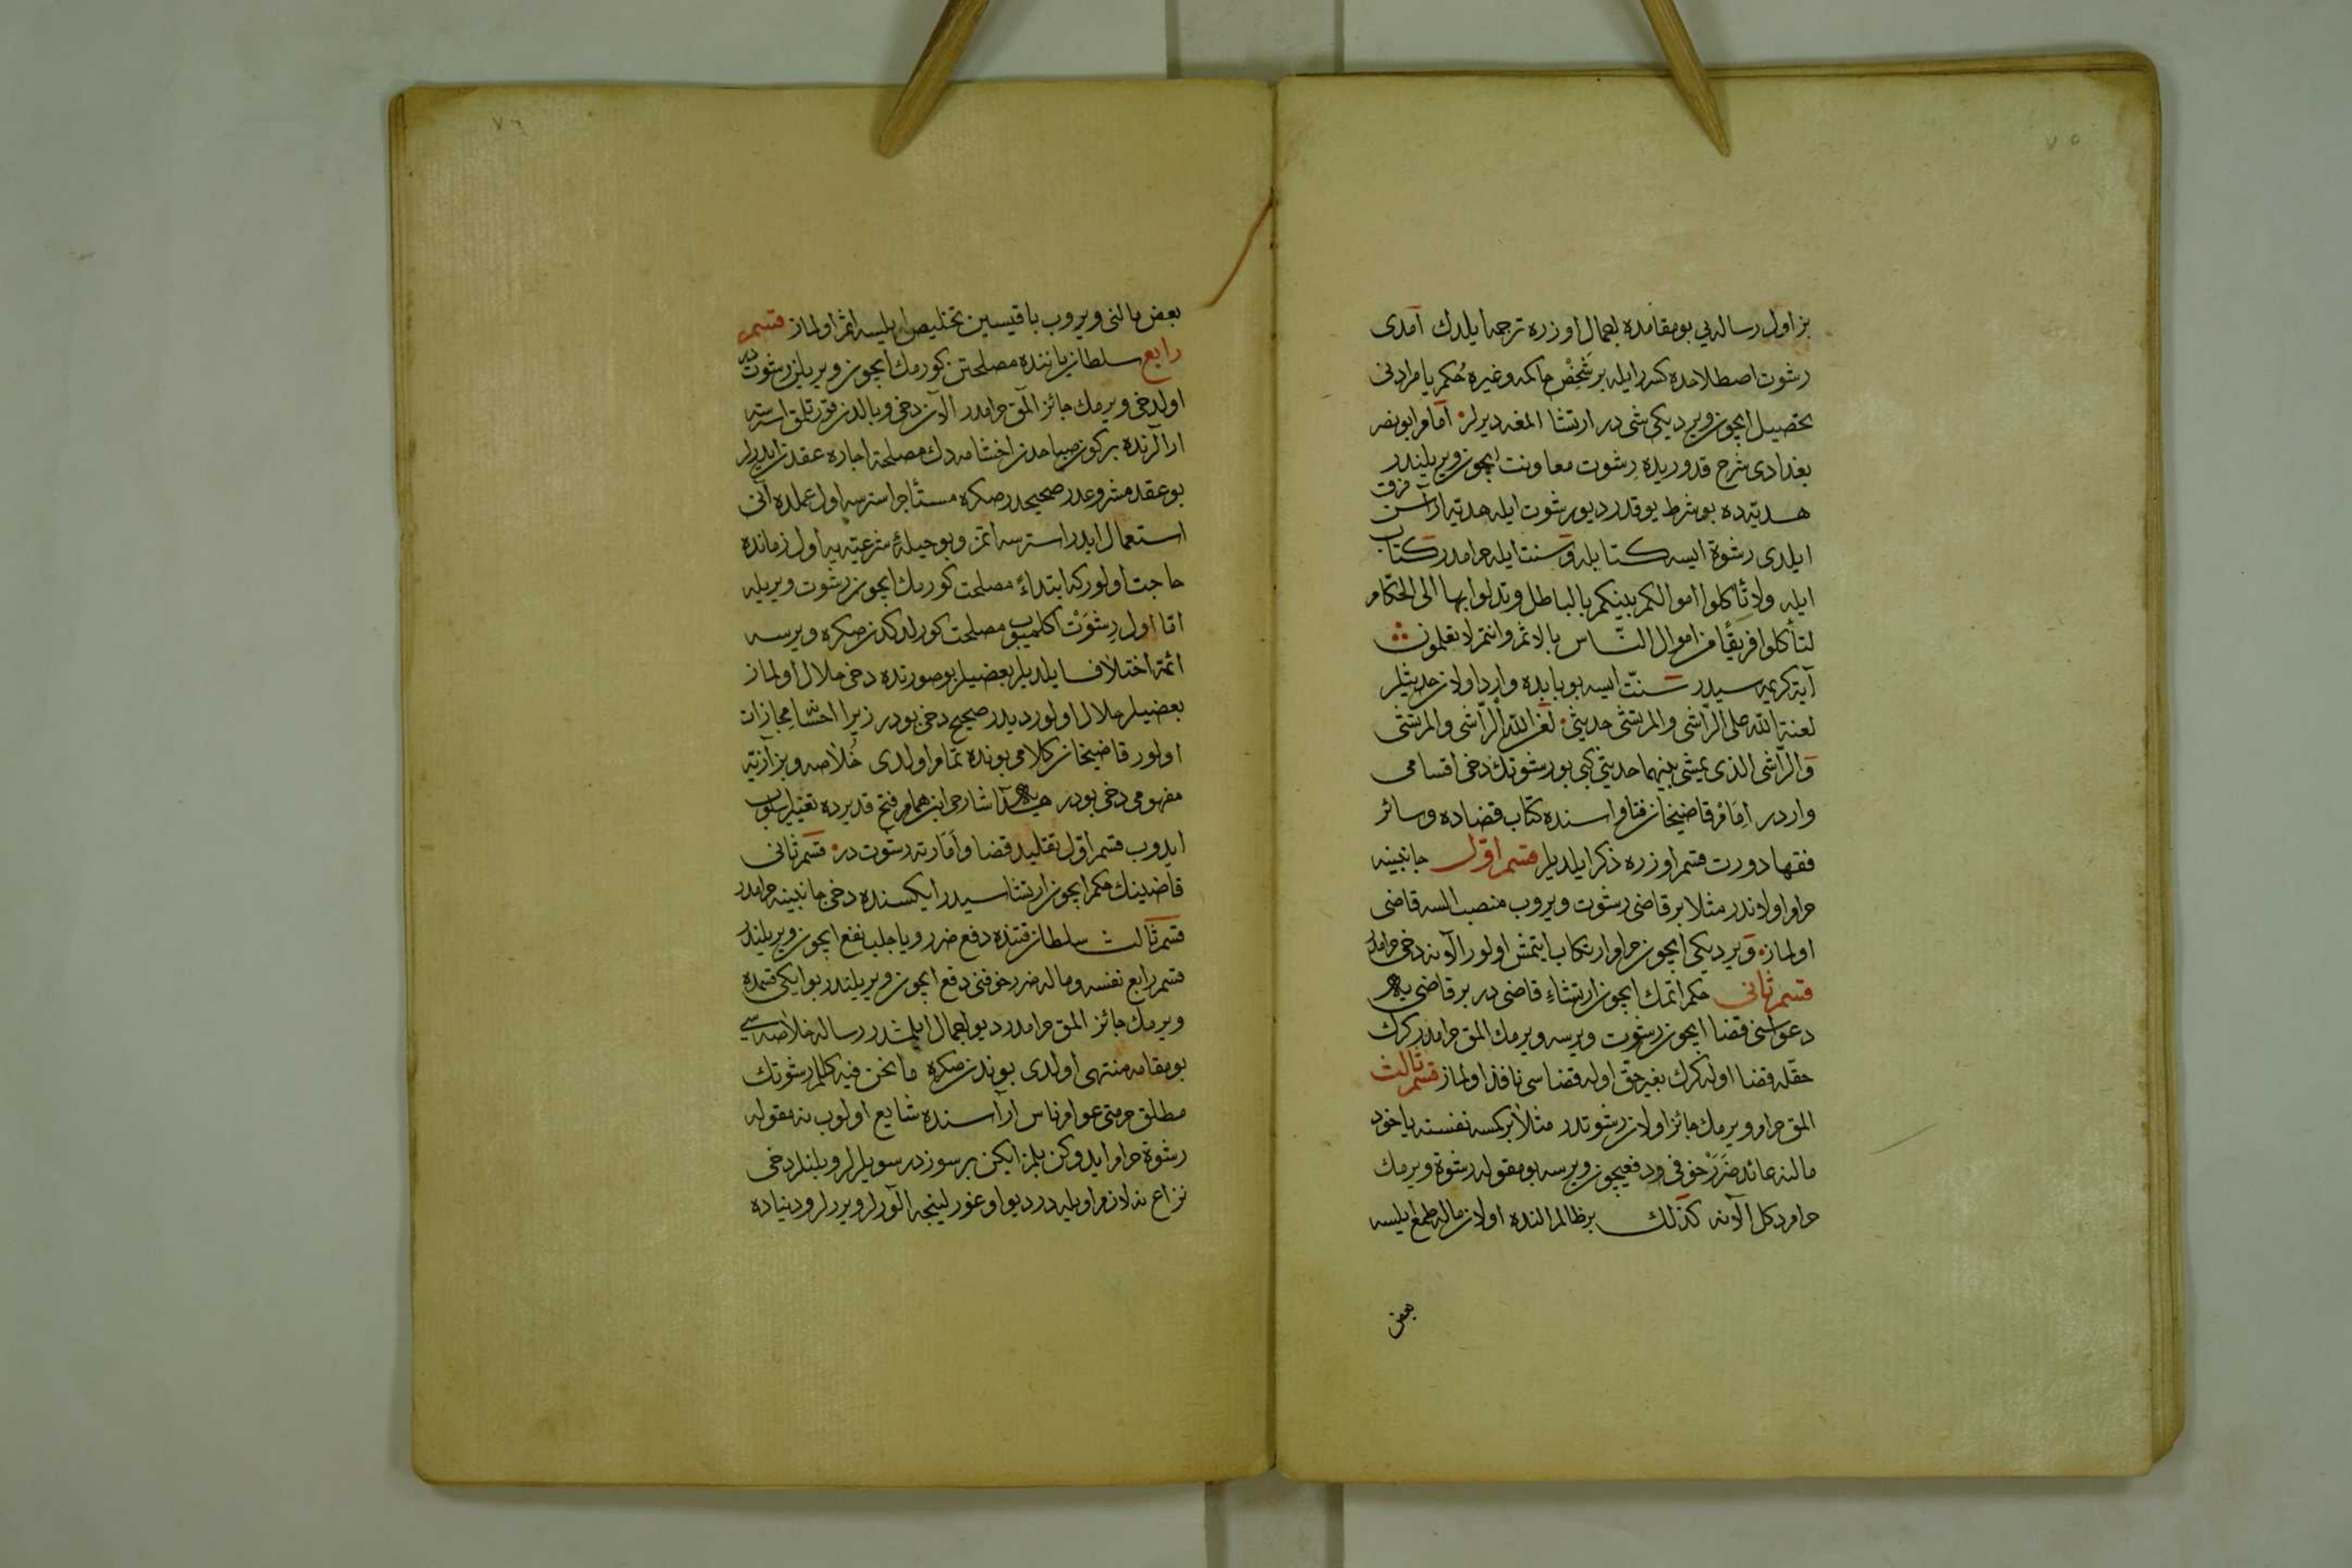 ٧٥
بز اول رساله يى بو مقامده اجمال اوزره ترجمه ايلدك آمدى
رشوت اصطلاحده كسر را ايله بر شخص حاكمه وغيره حكم يا مرادنى
تحصيل ايچون ويرديكى شى در ارتشا المغه ديرلر امام ابو نصر
بغدادى شرح قدوريده رشوت معاونت ايچون ويريلندر
هديه ده بو شرط يوقدر ديو رشوت ايله هديه آراسن فرق
ايلدى رشوة ايسه كتابله وسنت ايله حرامدر كتاب
ايله ولا تأكلوا اموالكم بينكم بالباطل وتدلوا بها الى الحكام
لتأكلوا فريقًا من اموال الناس بالاثم وانتم تعلمون
آية كريمه سيدر سنت ايسه بو بابده وارد اولان حديثلر
لعنة الله على الراشى والمرتشى حديثى لعن الله الراشى والمرتشى
والراشى الذى يمشى بينهما حديثى كبى بو رشوتك دخى اقسامى
واردر امام قاضيخان فتاواسنده كتاب قضاده وسائر
فقها دورت قسم اوزره ذكر ايلديلر قسم اول جانبينه
حرام اولاندر مثلا بر قاضى رشوت ويروب منصب السه قاضى
اولماز ويرديكى ايچون حرام ارتكاب ايتمش اولور الآنه دخى حرامدر
قسم ثانى حكم اتمك ايچون ارتشاء قاضى در بر قاضى يه
دعواسنى قضا ايچون رشوت ويرسه ويرمك المق حرامدر كرك
حقله قضا اوله كرك بغير حق اوله قضاسى نافذ اولماز قسم ثالث
المق حرام ويرمك جائز اولان رشوتدر مثلا بر كمسه نفسنه ياخود
مالنه عائد ضرر خوفى ودفعيچون ويرسه بو مقوله رشوة ويرمك
حرام دكل الآنه كذلك بر ظالم النده اولان ماله طمع ايلسه
بعض
٧٦
بعض مالنى ويروب باقيسين تخليص ايلسه اثم اولماز قسم
رابع سلطان ياننده مصلحتن كورمك ايچون ويريلن رشوتدر
اول دخى ويرمك جائز المق حرامدر الان دخى وبالدن قورتلمق استرسه
ارالرنده بر كون صباحدن اخشامه دك مصلحة اجاره عقدن ايدرلر
بو عقد مشروعدر صحيحدر صكره مستأجر استرسه اول عملده آنى
استعمال ايدر استرسه اتمز وبو حيلهٔ شرعيه يه اول زمانده
حاجت اولور كه ابتداءً مصلحت كورمك ايچون رشوت ويريله
اما اول رشوت اكلميوب مصلحت كورلدكدن صكره ويرسه
ائمه اختلاف ايلديلر بعضيلر بو صورتده دخى حلال اولماز
بعضيلر حلال اولور ديدر صحيح دخى بودر زيرا احسانه مجازات
اولور قاضيخان كلامى بونده تمام اولدى خلاصه وبزازيه
مفهومى دخى بودر هدايه شارحى ابن همام فتح قديرده تغيير اسلوب
ايدوب قسم اول تقليد قضا وامارته رشوت در قسم ثانى
قاضينك حكم ايچون ارتشاسيدر ايكسنده دخى جانبينه حرامدر
قسم ثالث سلطان قتنده دفع ضرر ويا جلب نفع ايچون ويريلندر
قسم رابع نفسه وماله ضرر خوفنى دفع ايچون ويريلندر بو ايكى قسمده
ويرمك جائز المق حرامدر ديو اجمال ايلمشدر رساله خلاصه سى
بو مقامه منتهى اولدى بوندن صكره ما نحن فيه كلالم رشوتك
مطلق حرمتى عوام ناس آراسنده شايع اولوب نه مقوله
رشوة حرام ايدوكن بلمز ايكن بر سوزدر سويلرلر وبلنلر دخى
نزاع نه لازم اويله در ديو اوغورلينجه الورلر ويررلر ودنياده